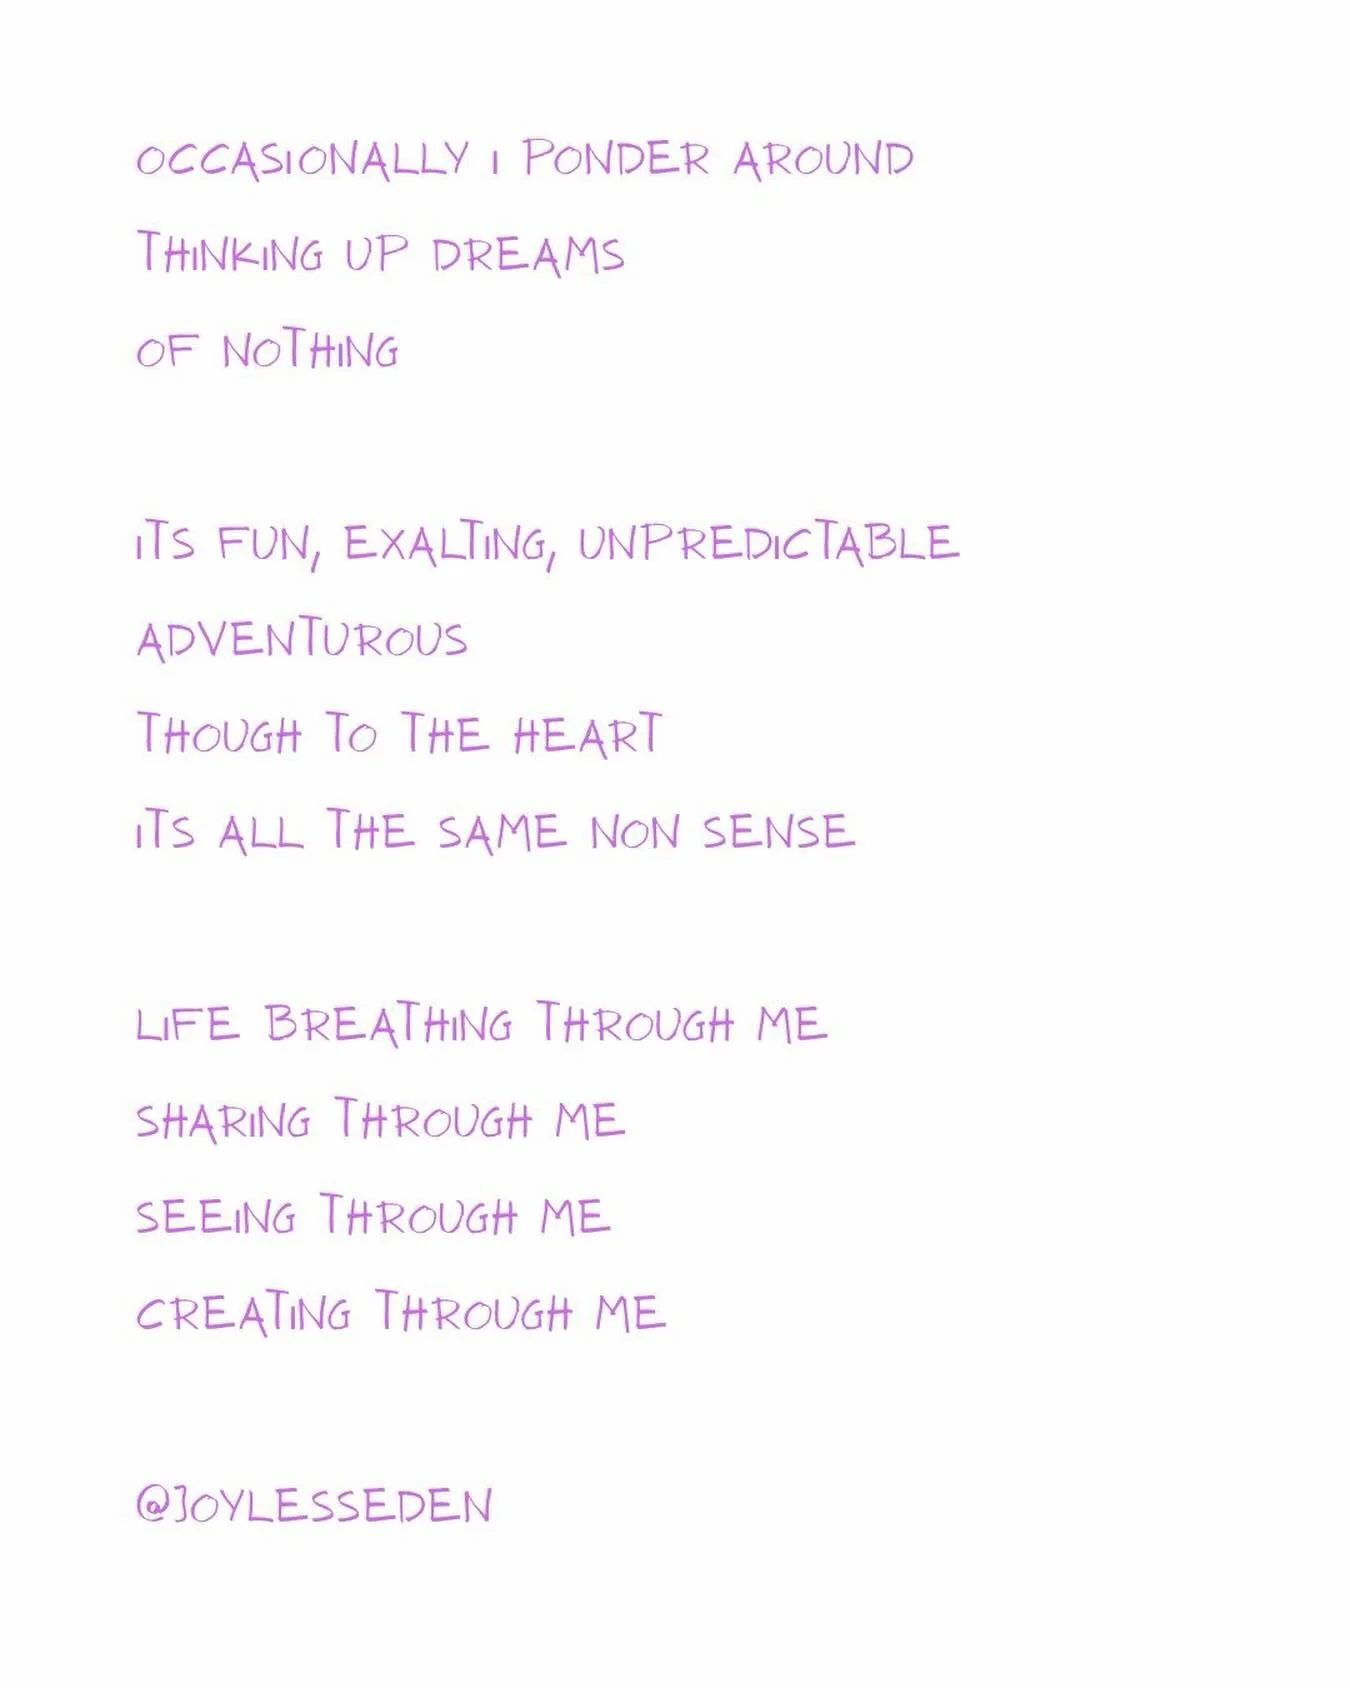 OCCASIONALLY I PONDER AROUND
THINKING UP DREAMS
OF NOTHING
ITS FUN, EXALTING, UNPREDICTABLE
ADVENTUROUS
THOUGH TO THE HEART
ITS ALL THE SAME NON SENSE
LIFE BREATHING THROUGH ME
SHARING THROUGH ME
SEEING THROUGH ME
CREATING THROUGH ME
@JOYLESSEDEN